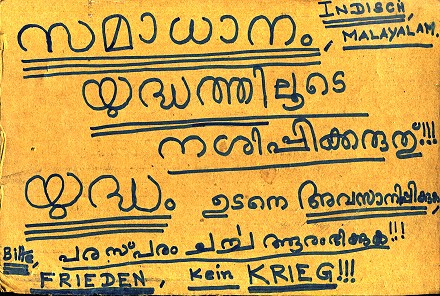 INDISCH,
സമാധാനം, MALAYALAM.
യുദ്ധത്തിലൂടെ
നശിപ്പിക്കരുത്!!!
യുദ്ധം ഉടനെ അവസാനിപ്പിക്കുക,
പരസ്പരം ചർച്ച ആരംഭിക്കുക!!!
Bitte, FRIEDEN, Kein KRIEG!!!